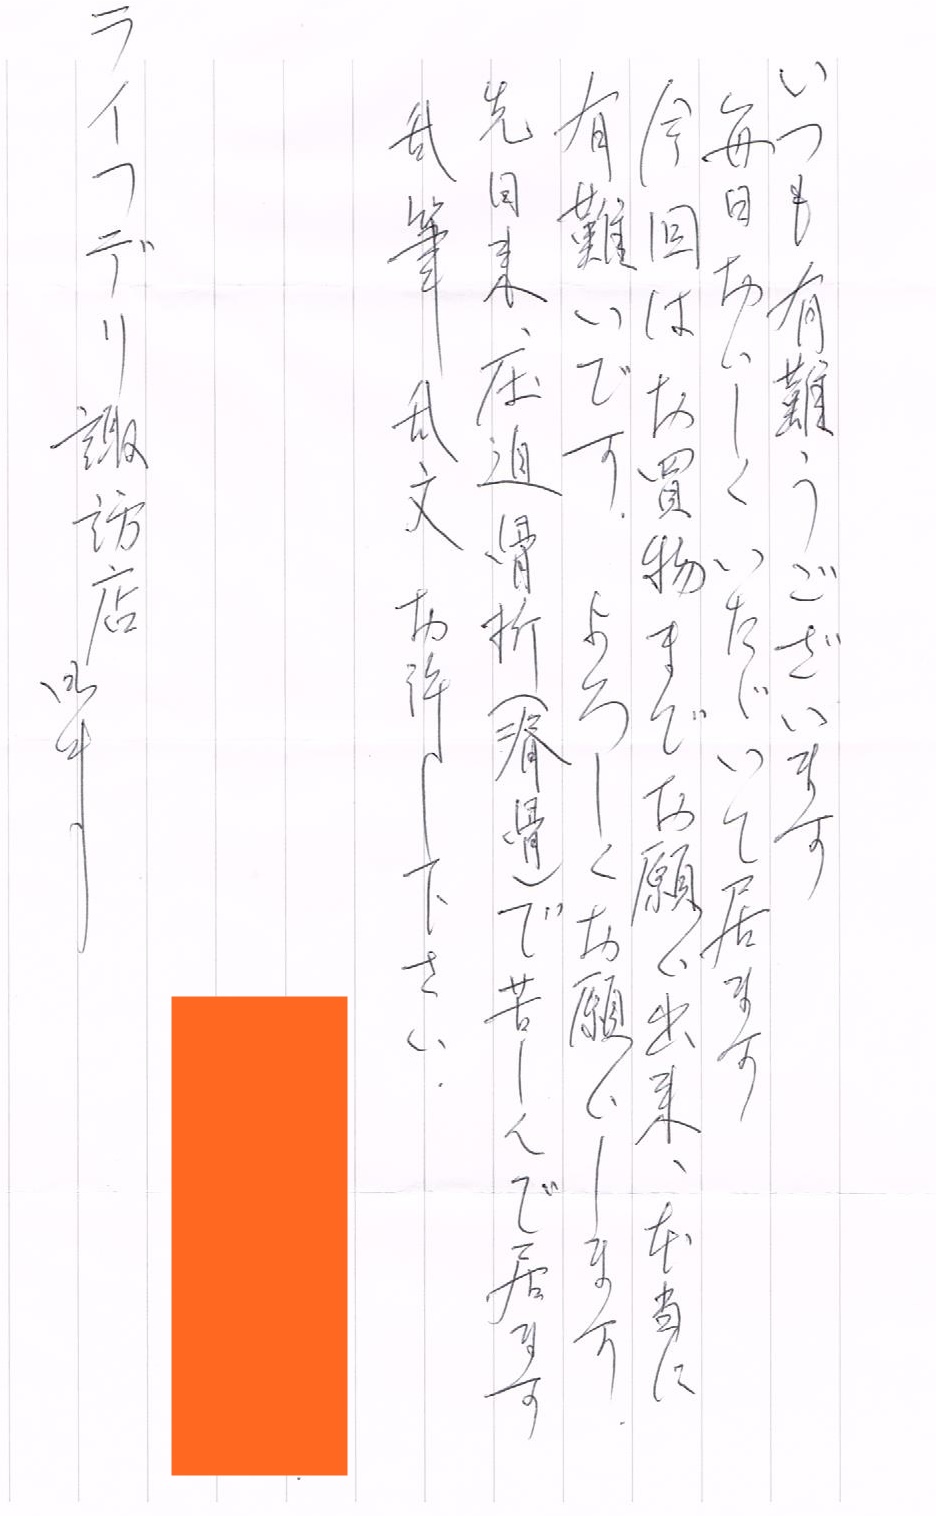 いつも有難うございます
毎日おいしくいただいて居ます
今回はお買物までお願い出来、本当に
有難いです。よろしくお願いします。
先日来、圧迫骨折(脊骨)で苦しんで居ます
乱筆乱文お許し下さい。
ライフデリ諏訪店